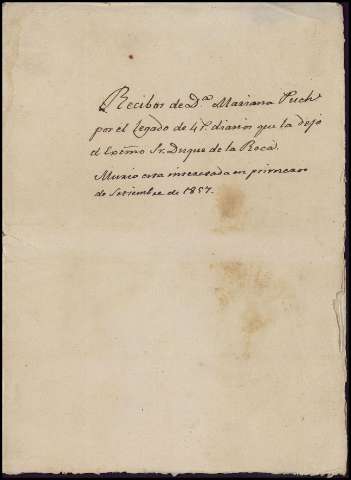 Recibos de D.ª Mariana Puch
por el legado de 4 r.ˢ diarios que la dejó
el Exc̃mo Sr. Duque de la Roca.
Murió esta interesada en primero
de Setiembre de 1857.